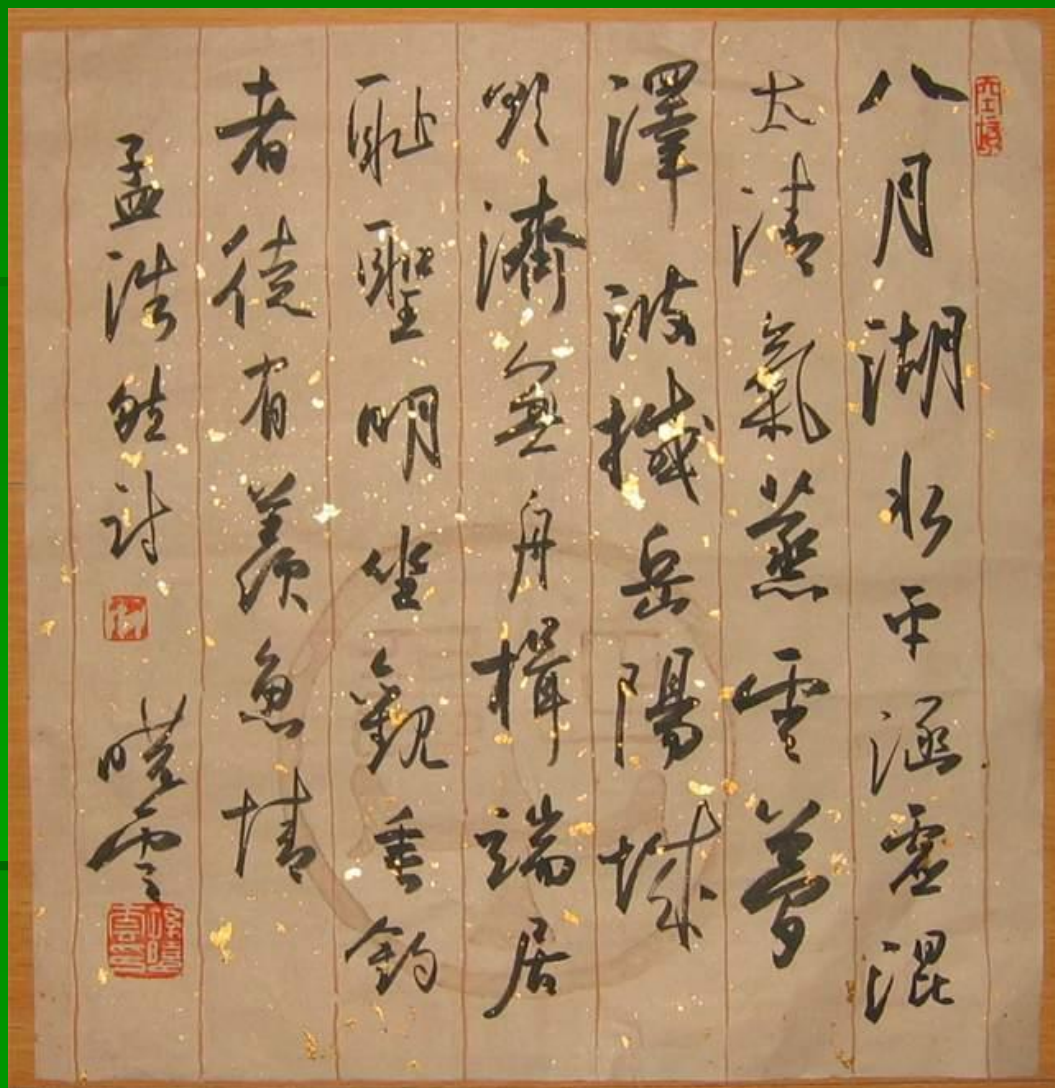 八月湖水平涵虛混
太清氣蒸雲夢
澤波撼岳陽城
欲濟無舟楫端居
耻聖明坐觀垂釣
者徒有羨魚情
孟浩然詩 曉雲
孫曉雲印